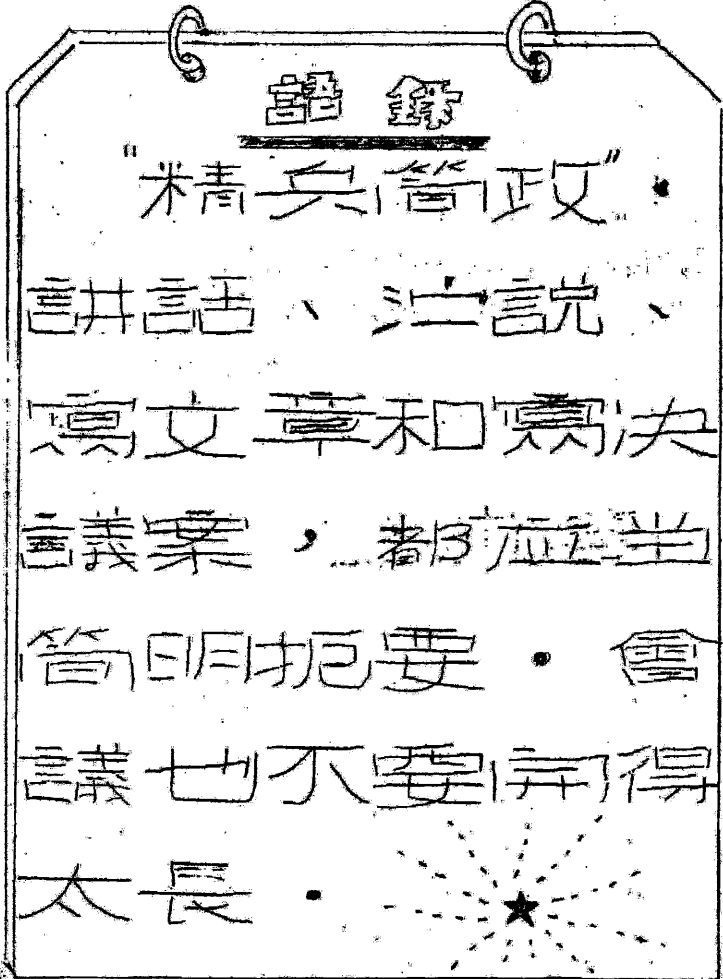 語錄
"精兵簡政"。
講話、演說、
寫文章和寫決
議案,都應當
簡明扼要。會
議也不要開得
太長。